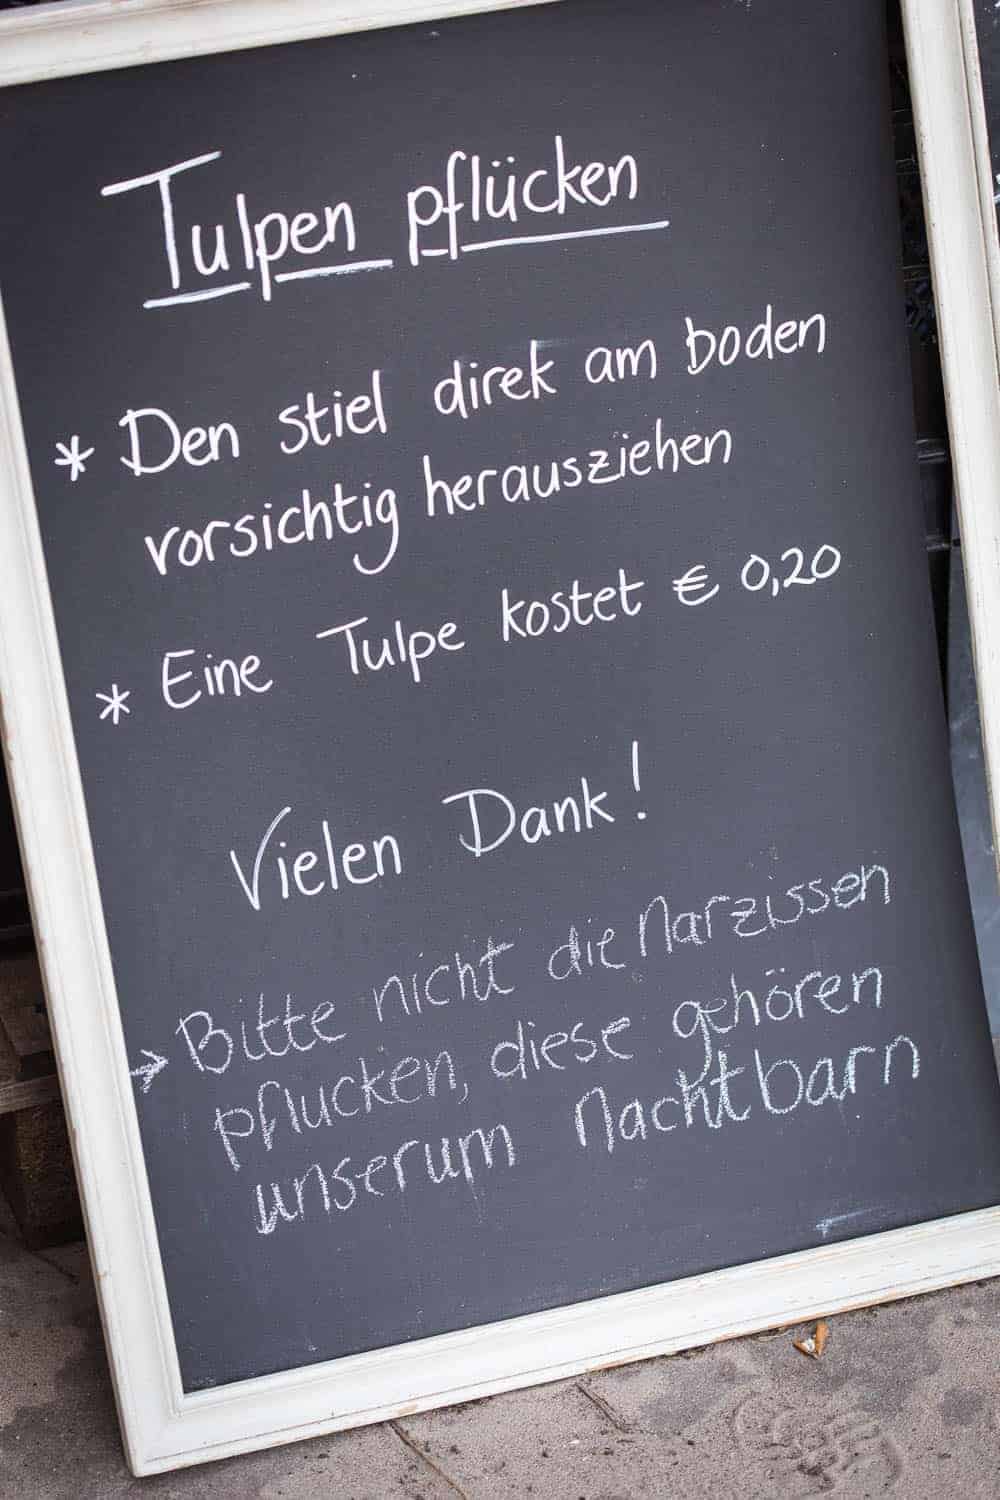 Tulpen pflücken
* Den stiel direk am boden
vorsichtig herausziehen
* Eine Tulpe kostet € 0,20
Vielen Dank!
→ Bitte nicht die Narzissen
pflucken, diese gehören
unserum Nachtbarn